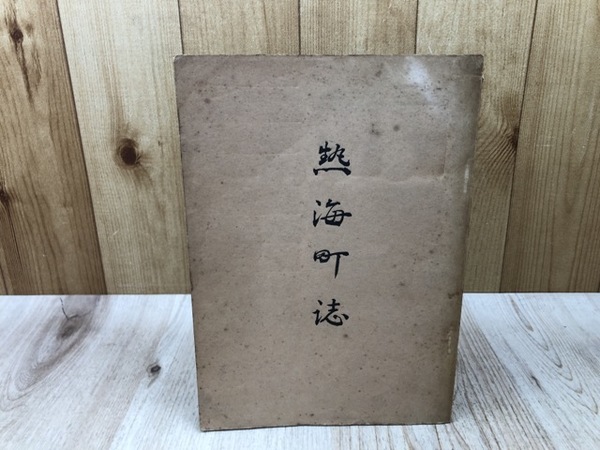 熱海町誌